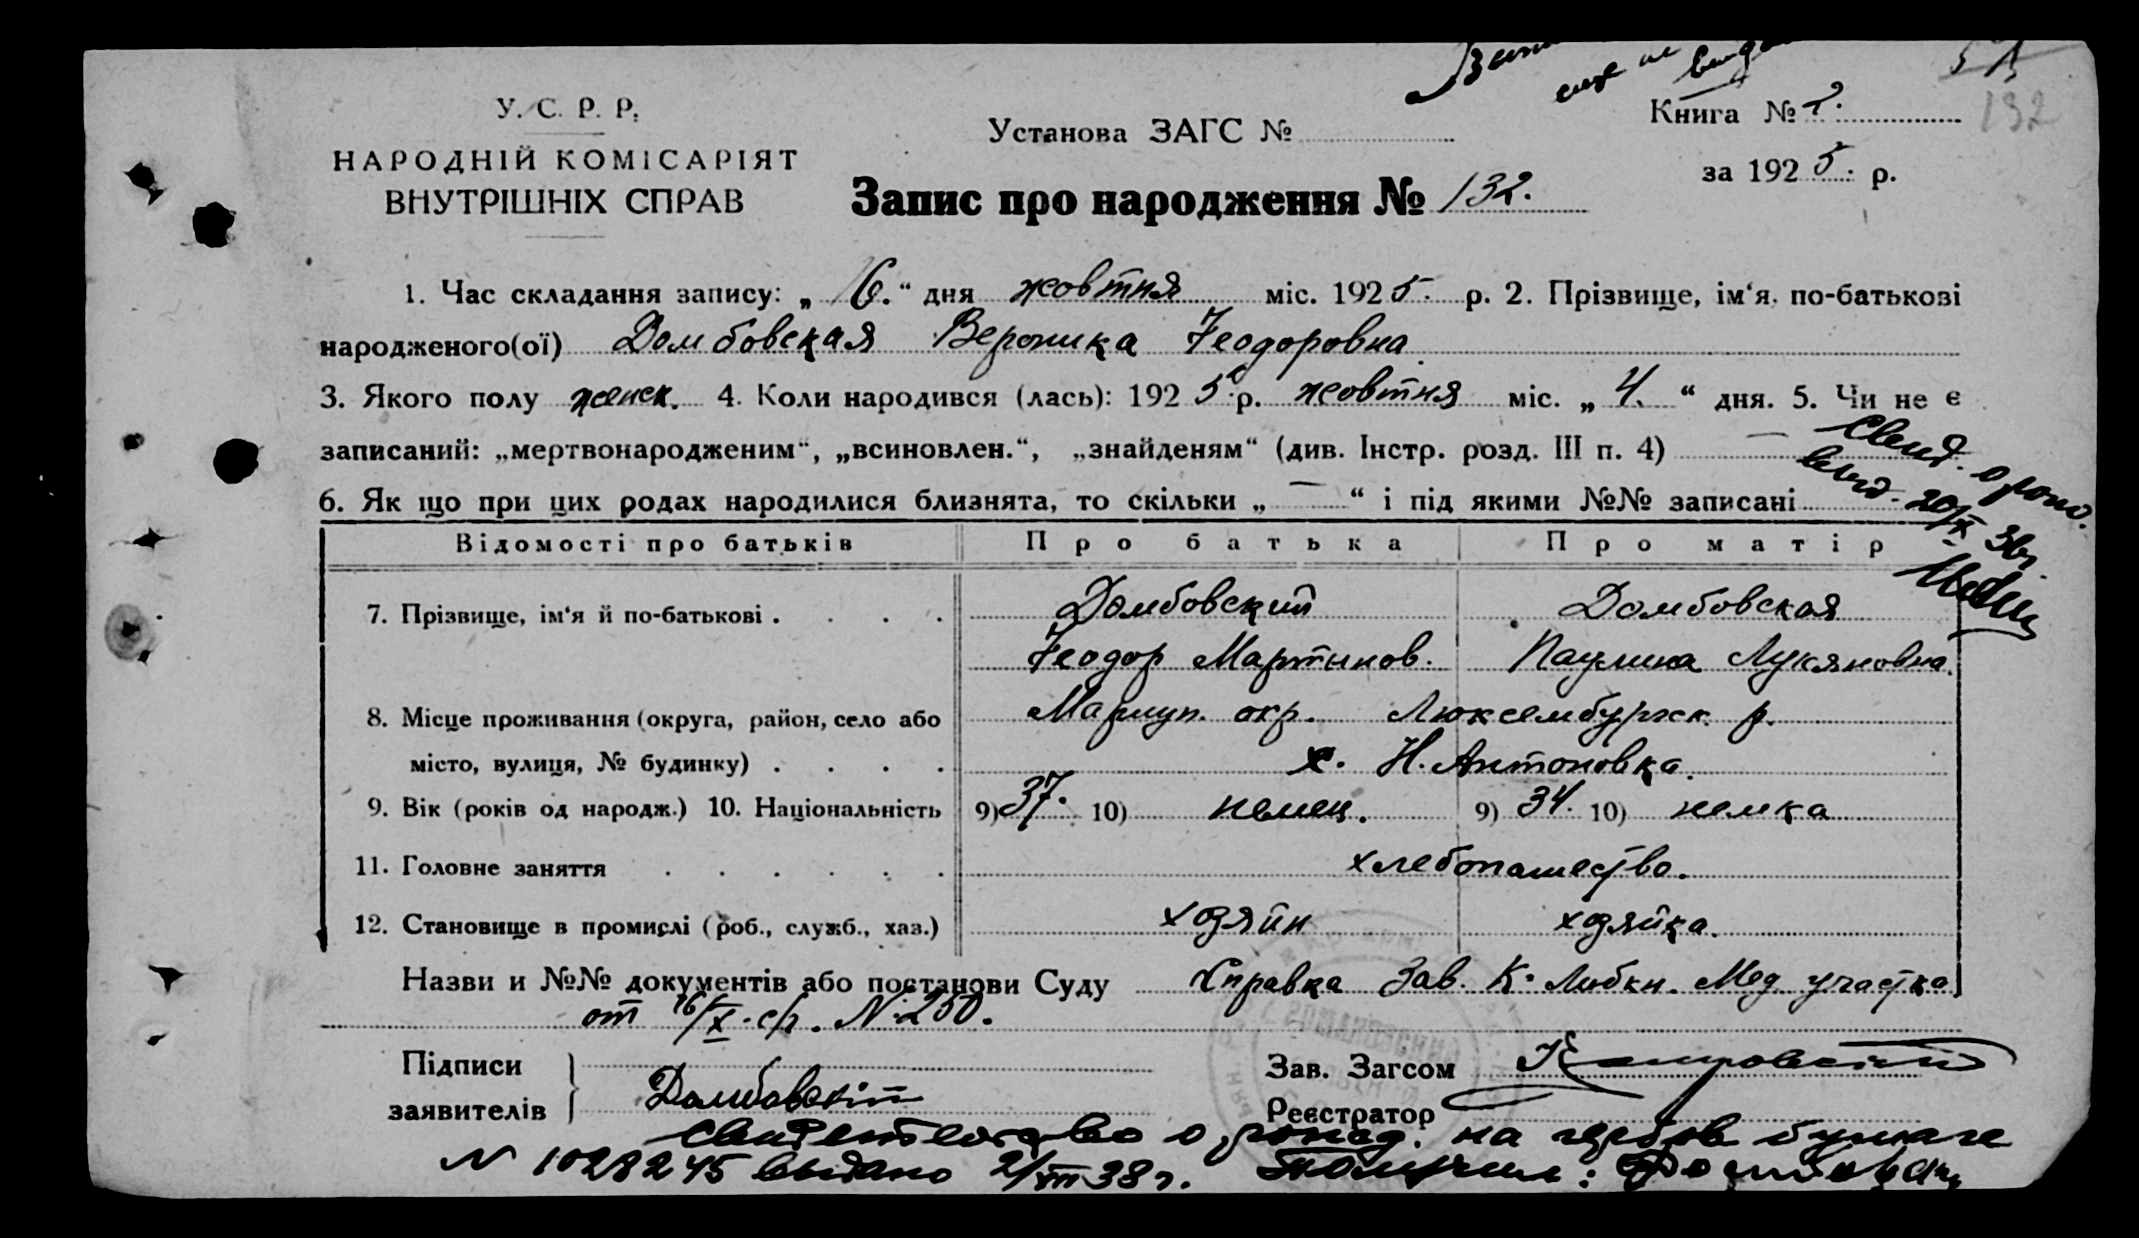 У. С. Р. Р.
НАРОДНІЙ КОМІСАРІЯТ
ВНУТРІШНІХ СПРАВ
Установа ЗАГС №
Запис про народження № 132.
Книга № 2.
за 1925. р.
132
1. Час складання запису: „16.“ дня жовтня міс. 1925. р. 2. Прізвище, ім‘я, по-батькові
народженого(ої) Домбовская Вероника Теодоровна
3. Якого полу женск. 4. Коли народився (лась): 1925 р. жовтня міс. „4.“ дня. 5. Чи не є
записаний: „мертвонародженим“, „всиновлен.“, „знайденям“ (див. Інстр. розд. III п. 4) —
6. Як що при цих родах народилися близнята, то скільки „—“ і під якими №№ записані
Свид. о рожд.
выд. 20/X 36г.
Відомості про батьків Про батька Про матір
7. Прізвище, ім‘я й по-батькові . . . . Домбовский Домбовская
Теодор Мартынов. Паулина Лукяновна.
8. Місце проживання (округа, район, село або Мариуп. окр. Люксембургск. р.
місто, вулиця, № будинку) . . . . х. Н. Антоновка.
9. Вік (років од народж.) 10. Національність 9) 37. 10) немец. 9) 34. 10) немка
11. Головне заняття . . . . . . хлебопашество.
12. Становище в промислі (роб., служб., хаз.) хозяйн хозяйка.
Назви и №№ документів або постанови Суду Справка Зав. К. Любкн. Мед. участка
от 16/X с/г. № 250.
Підписи
заявителів Домбовскій
Зав. Загсом
Реєстратор
Свидетельство о рожд. на гербов бумаге
N 1028245 выдано 2/VIII 38 г. Получил: